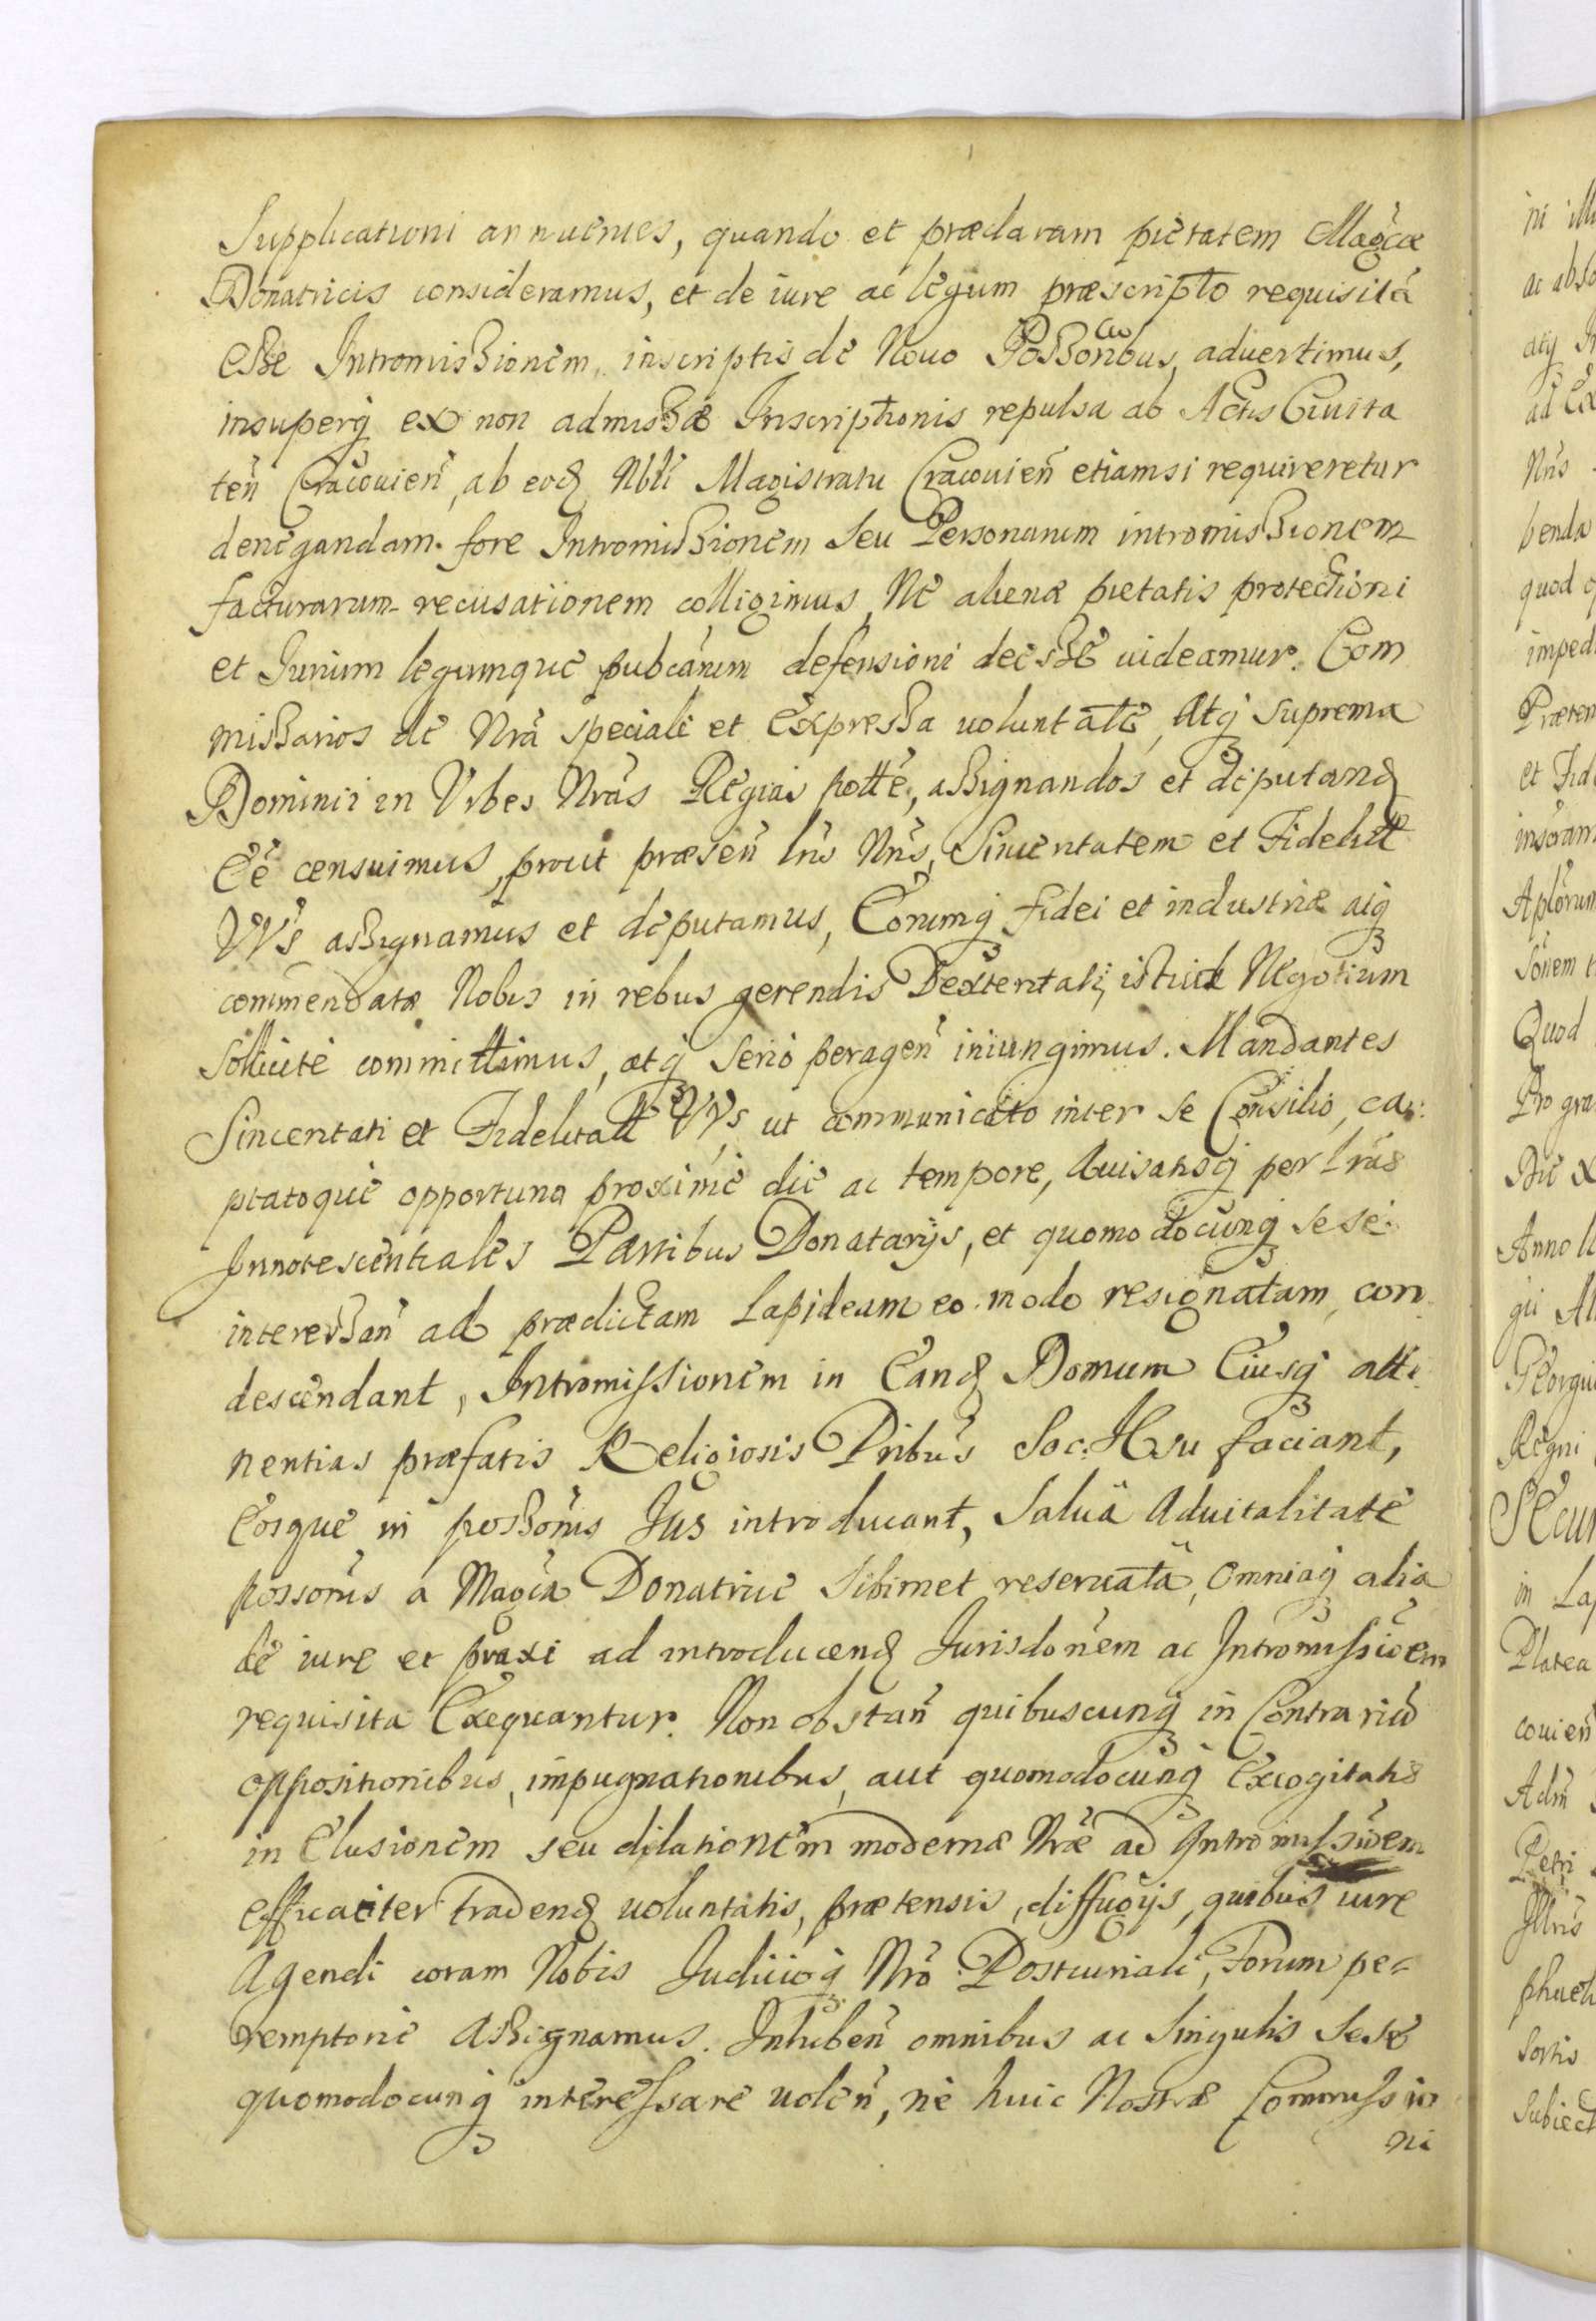 Supplicationi annuentes, quando et præclaram pietatem Magcæ
Donatricis consideramus, et de iure ac legum præscripto requisitá
esse Intromissionem, inscriptis de Nouo Possonibus, aduertimus,
insuperq ex non admissæ Inscriptionis repulsa ab Actis Ciuita
ten Cracouien, ab eod Nbli Magistratu Cracouien etiamsi requireretur
denegandam fore Intromissionem seu Personarum intromissionem
facturarum recusationem colligimus, Ne alienæ pietatis protectioni
et Jurium legumque pubcarum defensioni deesse uideamur. Com
missarios de Nra speciali et Expressa uoluntate, Atq suprema
Dominii in Vrbes Nras Regias potte, assignandos et deputand
Ee censuimus, prout præsen lris Nris, Sinceritatem et Fidelitt
VVs assignamus et deputamus, Eorumq fidei et industriæ atq
commendatæ Nobis in rebus gerendis Dexteritati, istud Negotium
sollicite committimus, atq serio peragen iniungimus. Mandantes
Sinceritati et Fidelitatt VVs, ut communicato inter se Consilio, ca:
ptatoque opportuno proxime die ac tempore, Auisatisq per lras
Innotescentiales Partibus Donatarijs, et quomodocunq sese
interessan ad prædictam Lapideam eo modo resignatam, con
descendant, Intromissionem in Eand Domum Eiusq atti
nentias præfatis Religiosis Pribus Soc: Iesu faciant,
Eosque in possonis Jus introducant, Saluâ Aduitalitate
possonis a Magca Donatrice sibimet reseruatâ, Omniaq alia
de iure et praxi ad introducend Jurisdonem ac Intromissioem
requisita Exequantur. Non obstan quibuscunq in Contrariu
oppositionibus, impugnationibus, aut quomodocunq Excogitatis
in Elusionem seu dilationem modernæ Nræ ad Intromissioem
efficaciter tradend uoluntatis, prætensis, diffugijs, quibus iure
Agendi coram Nobis Judicioq Nro Postcuriali, Forum pe=
remptorie Assignamus. Inhiben omnibus ac singulis sese
quomodocunq interessare uolen, ne huic Nostræ Commissio
ni